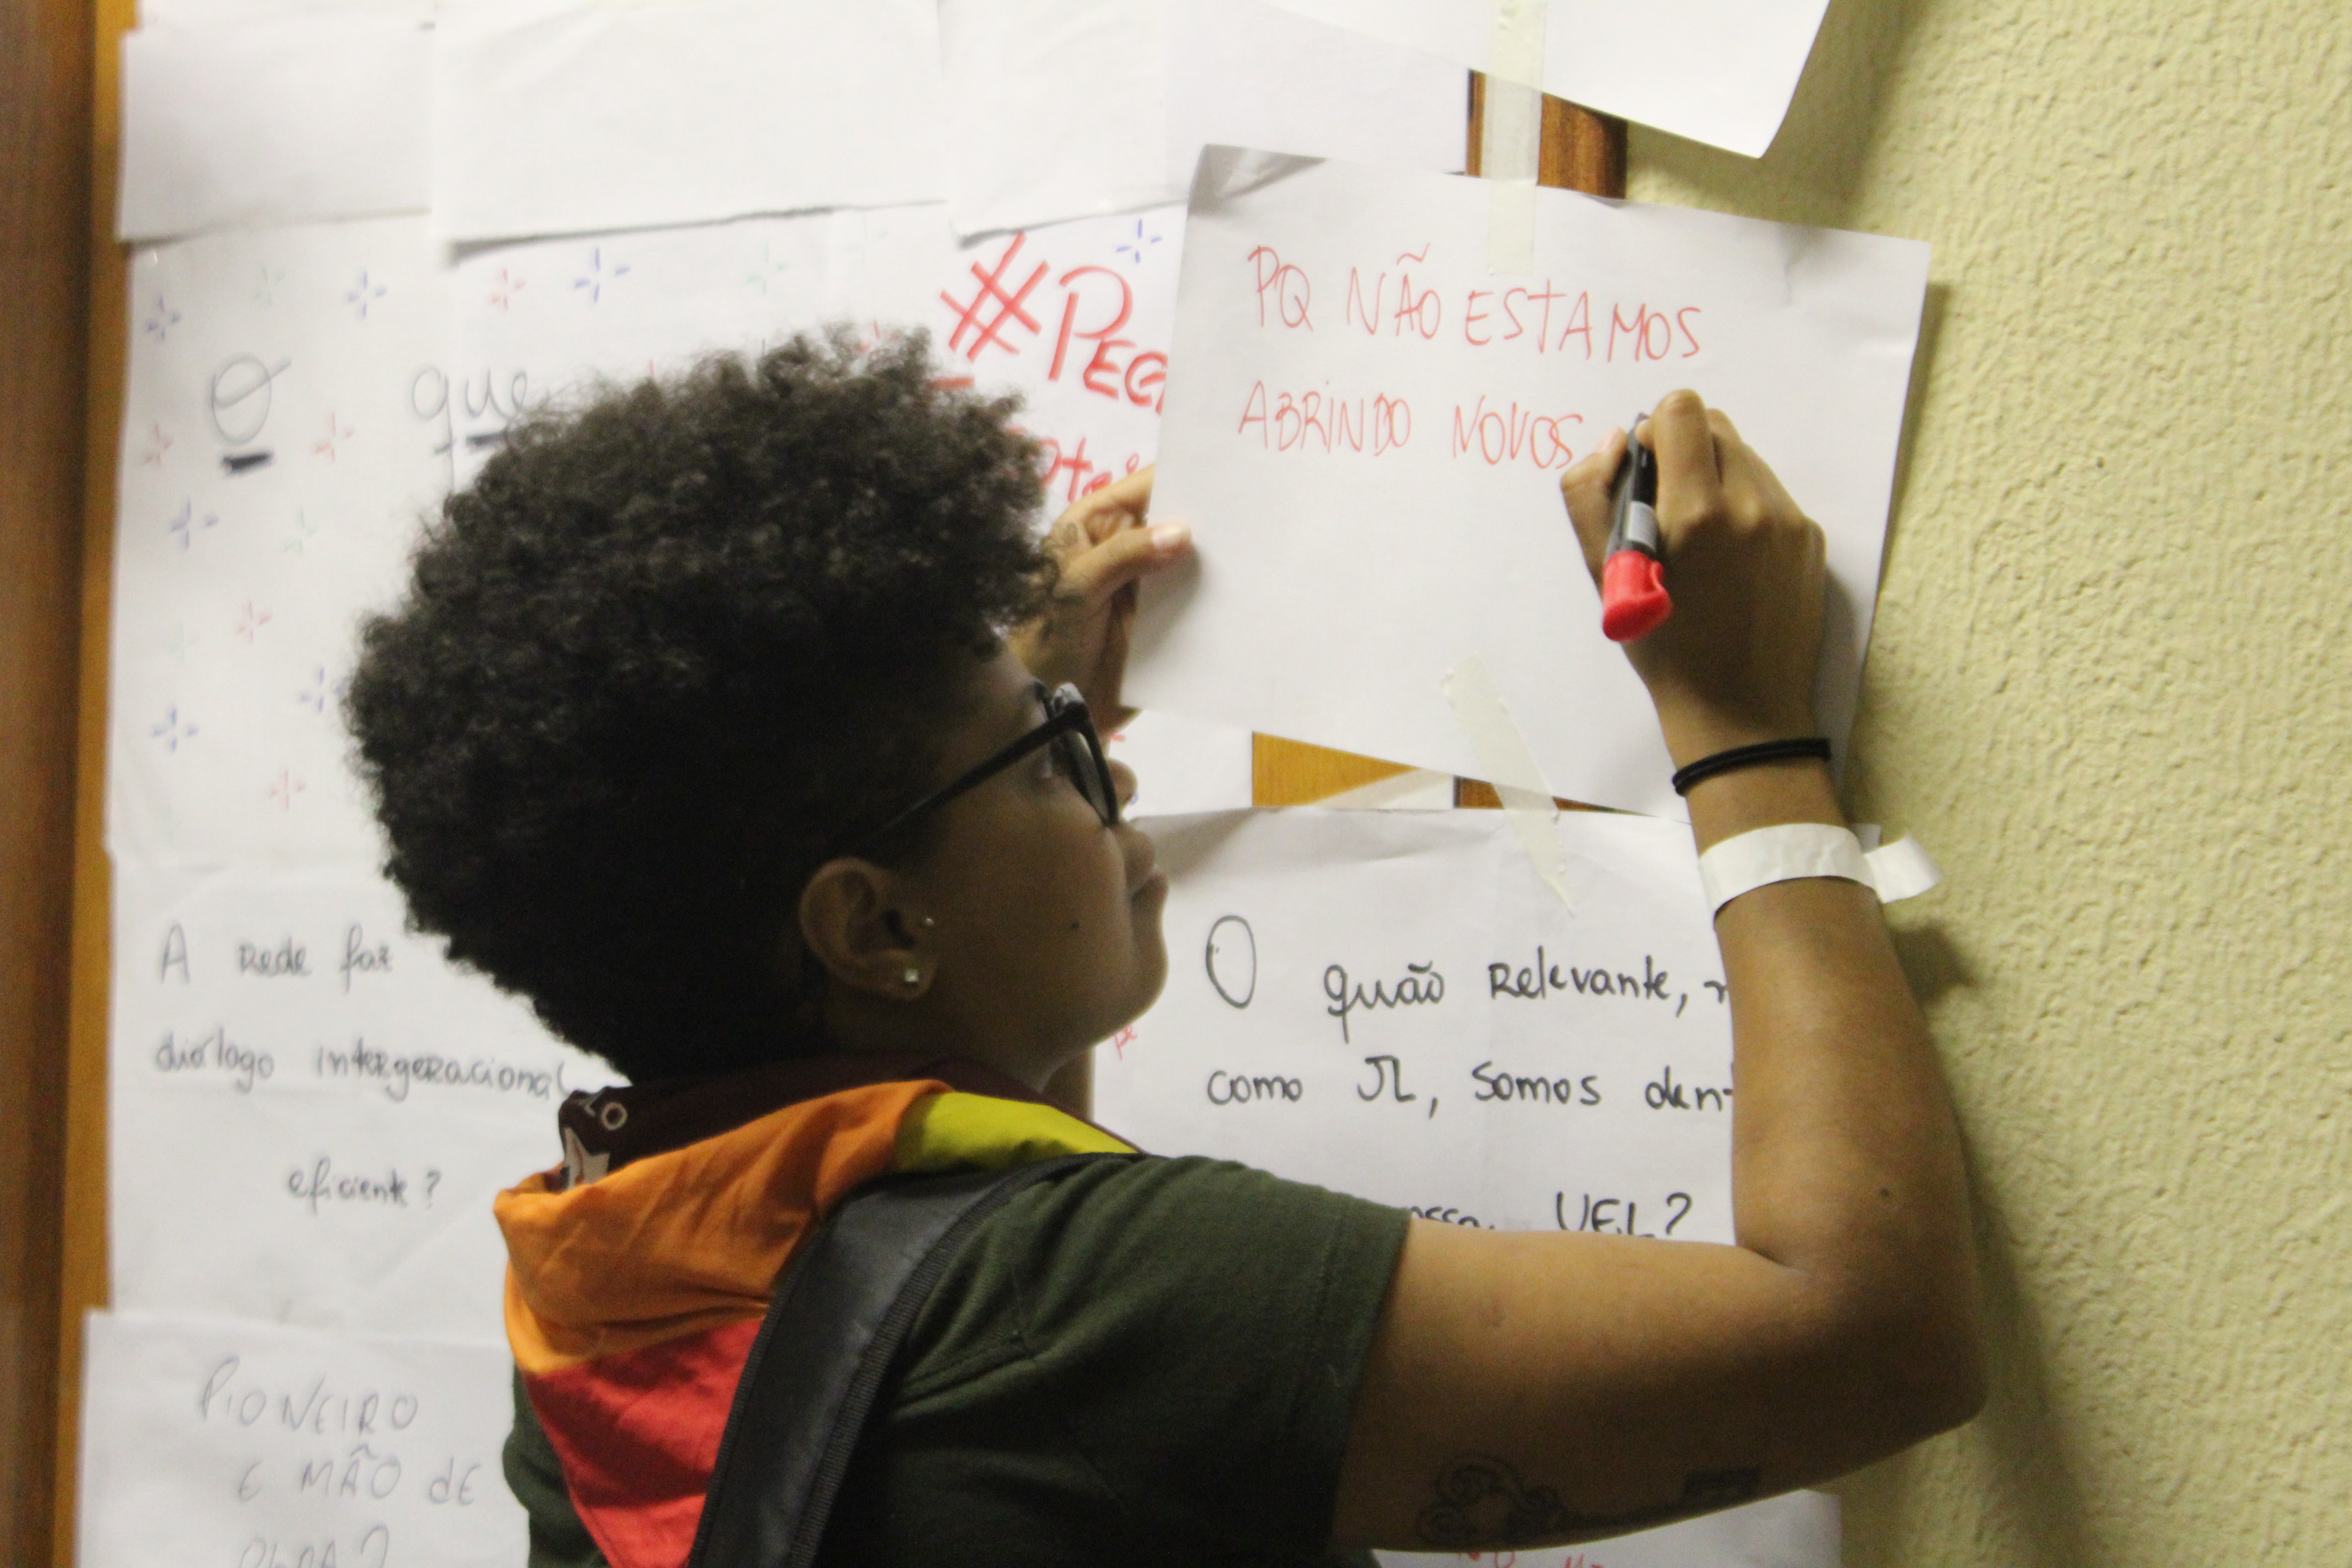 O que
#PEG
PQ NÃO ESTAMOS
ABRINDO NOVOS
A rede faz
diálogo intergeracional
eficiente?
O quão relevante,
como JL, somos
UEL?
PIONEIRO
É MÃO dE
OBRA?